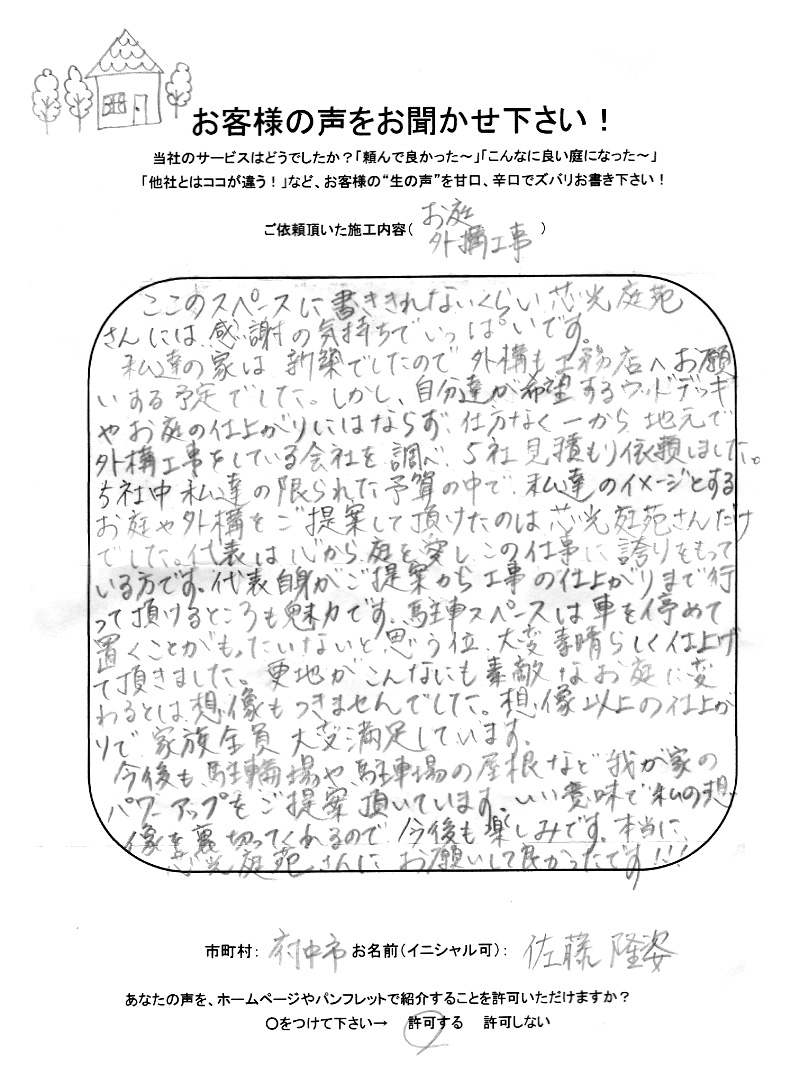 お客様の声をお聞かせ下さい！
当社のサービスはどうでしたか？「頼んで良かった～」「こんなに良い庭になった～」
「他社とはココが違う！」など、お客様の“生の声”を甘口、辛口でズバリお書き下さい！
ご依頼頂いた施工内容（ お庭
外構工事 ）
ここのスペースに書ききれないくらい芯光庭苑
さんには感謝の気持ちでいっぱいです。
私達の家は新築でしたので外構も工務店へお願
いする予定でした。しかし、自分達が希望するウッドデッキ
やお庭の仕上がりにはならず、仕方なく一から地元で
外構工事をしている会社を調べ、5社見積もり依頼しました。
5社中私達の限られた予算の中で、私達のイメージとする
お庭や外構をご提案して頂けたのは芯光庭苑さんだけ
でした。代表は心から庭を愛し、この仕事に誇りをもって
いる方です。代表自身がご提案から工事の仕上がりまで行
って頂けるところも魅力です。駐車スペースは車を停めて
置くことがもったいないと思う位、大変素晴らしく仕上げ
て頂きました。更地がこんなにも素敵なお庭に変
わるとは想像もつきませんでした。想像以上の仕上が
りで家族全員大変満足しています。
今後も、駐輪場や駐車場の屋根など我が家の
パワーアップをご提案頂いています。いい意味で私の想
像を裏切ってくれるので、今後も楽しみです。本当に、
芯光庭苑さんにお願いして良かったです!!!
市町村： 府中市 お名前（イニシャル可）： 佐藤 隆姿
あなたの声を、ホームページやパンフレットで紹介することを許可いただけますか？
○をつけて下さい→ 許可する 許可しない